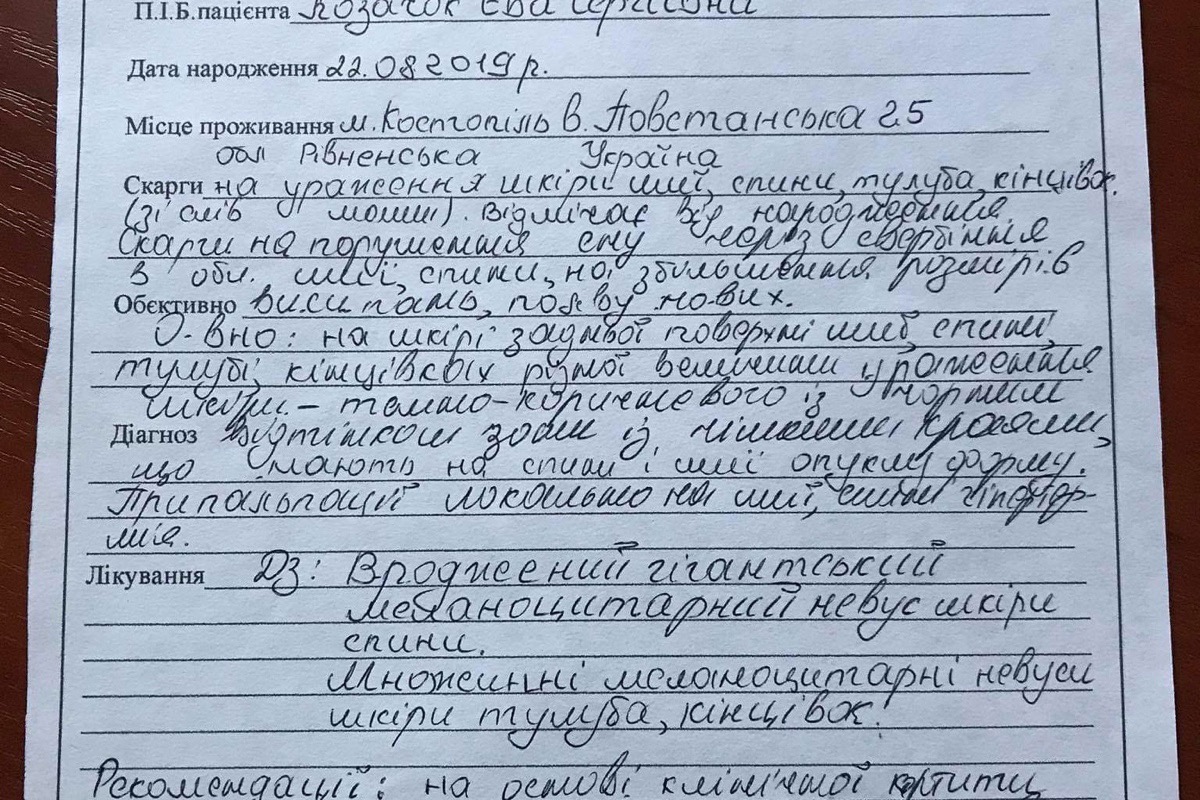 П.І.Б.пацієнта Козачок Єва Сергіївни
Дата народження 22.08 2019 р.
Місце проживання м.Костопіль в. Повстанська 25
обл Рівненська Україна
Скарги на ураження шкіри шиї, спини, тулуба, кінцівок.
(зі слів мами). Відмічає від народження.
Скарги на порушення сну через свербіння
в обл. шиї, спини, на збільшення розмірів
Обєктивно висипань, появу нових.
О-вно: на шкірі задньої поверхні шиї, спини,
тулубі, кінцівках різної величини ураження
шкіри - темно-коричневого із чорним
Діагноз відтінком зони із чіткими краями,
що мають на спині і шиї опуклу форму.
При пальпації локально на шиї, спині гіпертер-
мія.
Лікування Дз: Вроджений гігантський
меланоцитарний невус шкіри
спини.
Множинні меланоцитарні невуси
шкіри тулуба, кінцівок.
Рекомендації: на основі клінічної картини